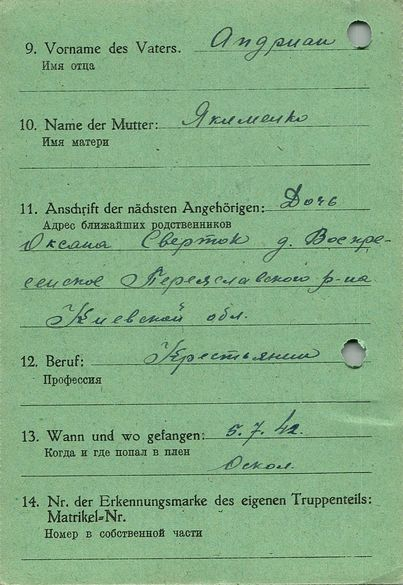 9. Vorname des Vaters. Андриан
Имя отца
10. Name der Mutter: Якименко
Имя матери
11. Anschrift der nächsten Angehörigen: Дочь
Адрес ближайших родственников
Оксана Сверток д. Воскре-
сенское Переяславского р-на
Киевской обл.
12. Beruf: Крестьянин
Профессия
13. Wann und wo gefangen: 5.7.42.
Когда и где попал в плен
Оскол.
14. Nr. der Erkennungsmarke des eigenen Truppenteils:
Matrikel-Nr.
Номер в собственной части